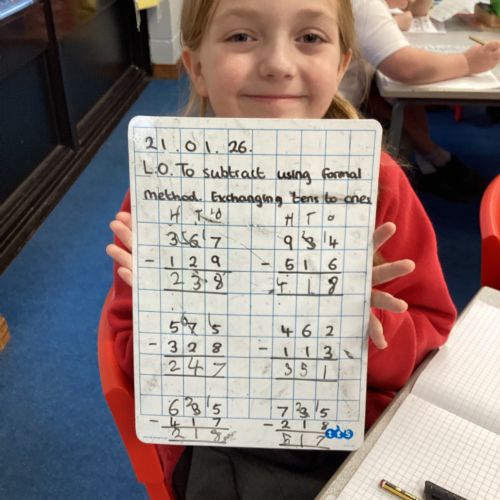 21.01.26.
L.O. To subtract using formal
method. Exchanging tens to ones
H T O H T O
3 6 7 9 3 4
- 1 2 9 - 5 1 6
2 3 8 4 1 8
5 7 5 4 6 2
- 3 2 8 - 1 1 3
2 4 7 3 5 1
6 3 5 7 3 5
- 4 1 7 - 2 1 8
2 1 8 5 1 7
tes